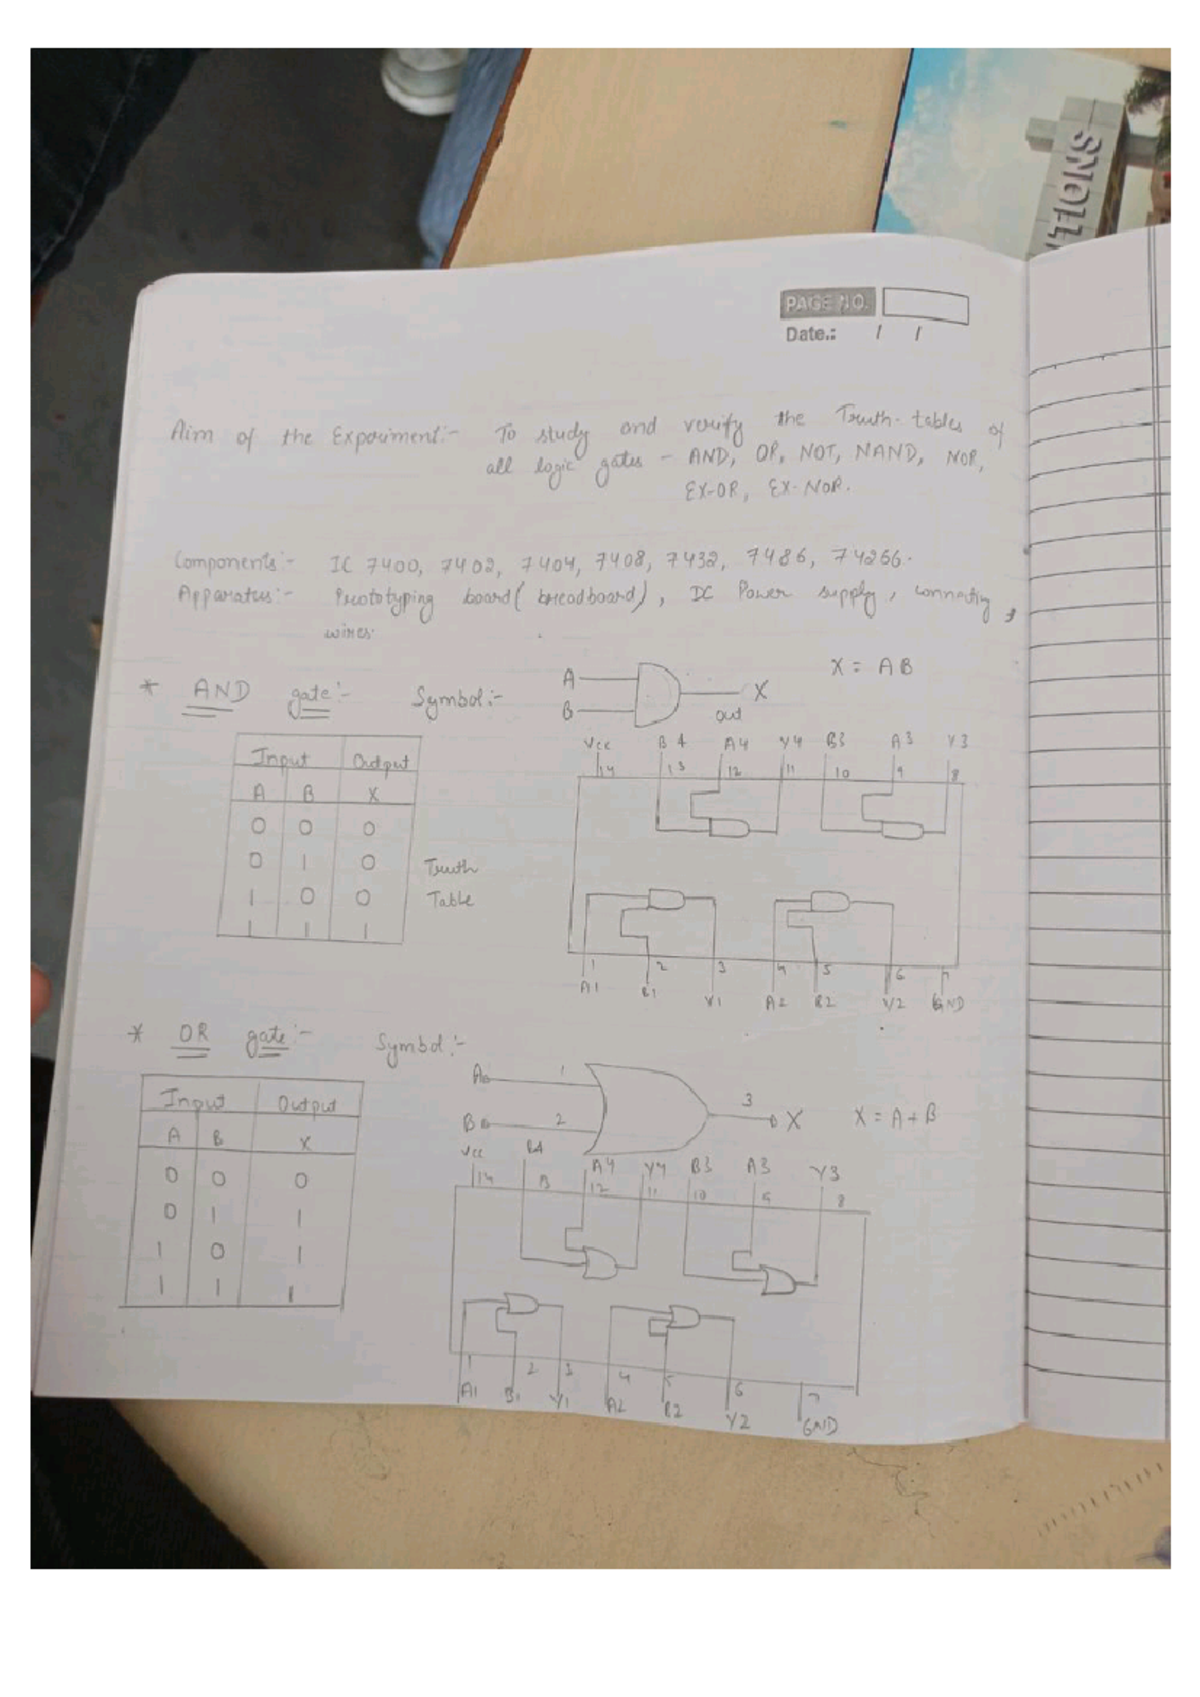 TTIONS
PAGE NO.
Date.: / /
Aim of the Experiment:- To study and verify the Truth-tables of
all logic gates - AND, OR, NOT, NAND, NOR,
EX-OR, EX-NOR.
Components:- IC 7400, 7402, 7404, 7408, 7432, 7486, 74266.
Apparatus:- Prototyping board (breadboard), DC Power supply, connecting
wires.
* AND gate:- Symbol:- A B out X X = AB
Input Output
A B X
0 0 0
0 1 0
1 0 0
1 1 1
Truth
Table
Vcc B4 A4 Y4 B3 A3 Y3
14 13 12 11 10 9 8
1 2 3 4 5 6 7
A1 B1 Y1 A2 B2 Y2 GND
* OR gate:- Symbol:-
A 1
B 2 3 X X = A+B
Input Output
A B X
0 0 0
0 1 1
1 0 1
1 1 1
Vcc B4 A4 Y4 B3 A3 Y3
14 13 12 11 10 9 8
1 2 3 4 5 6 7
A1 B1 Y1 A2 B2 Y2 GND